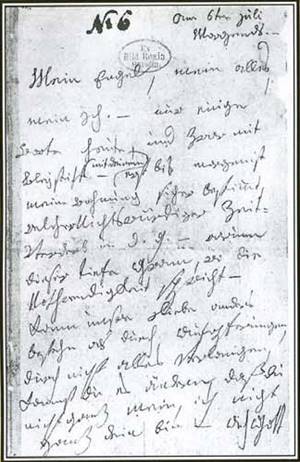 No 6
am 6ten Juli
Morgends. –
Ex
Bibl. Regia
Berolin.
Mein Engel, mein alles,
mein Ich. – nur einige
Worte heute, und zwar mit
Bleystift – (mit deinem)
erst bis morgen ist
meine Wohnung sicher bestimmt,
welcher Nichtswürdiger Zeit-
verderb in d. g. – warum
dieser tiefe Gram, wo die
Nothwendigkeit spricht –
Kann unsre Liebe anders
bestehn als durch Aufopferungen,
durch nicht alles verlangen,
kannst du es ändern, daß du
nicht ganz mein, ich nicht
ganz dein bin – Ach Gott